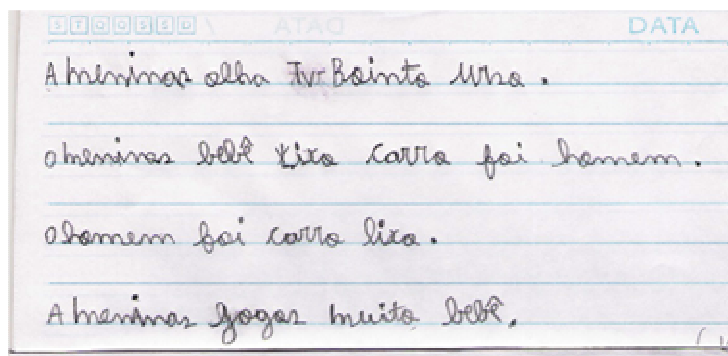 STQQSSD DATA
A meninas olha Tv Bointo Urso.
O meninas bebê lixo carro foi homem.
O homem foi carro lixo.
A meninas gogas muito bebê.